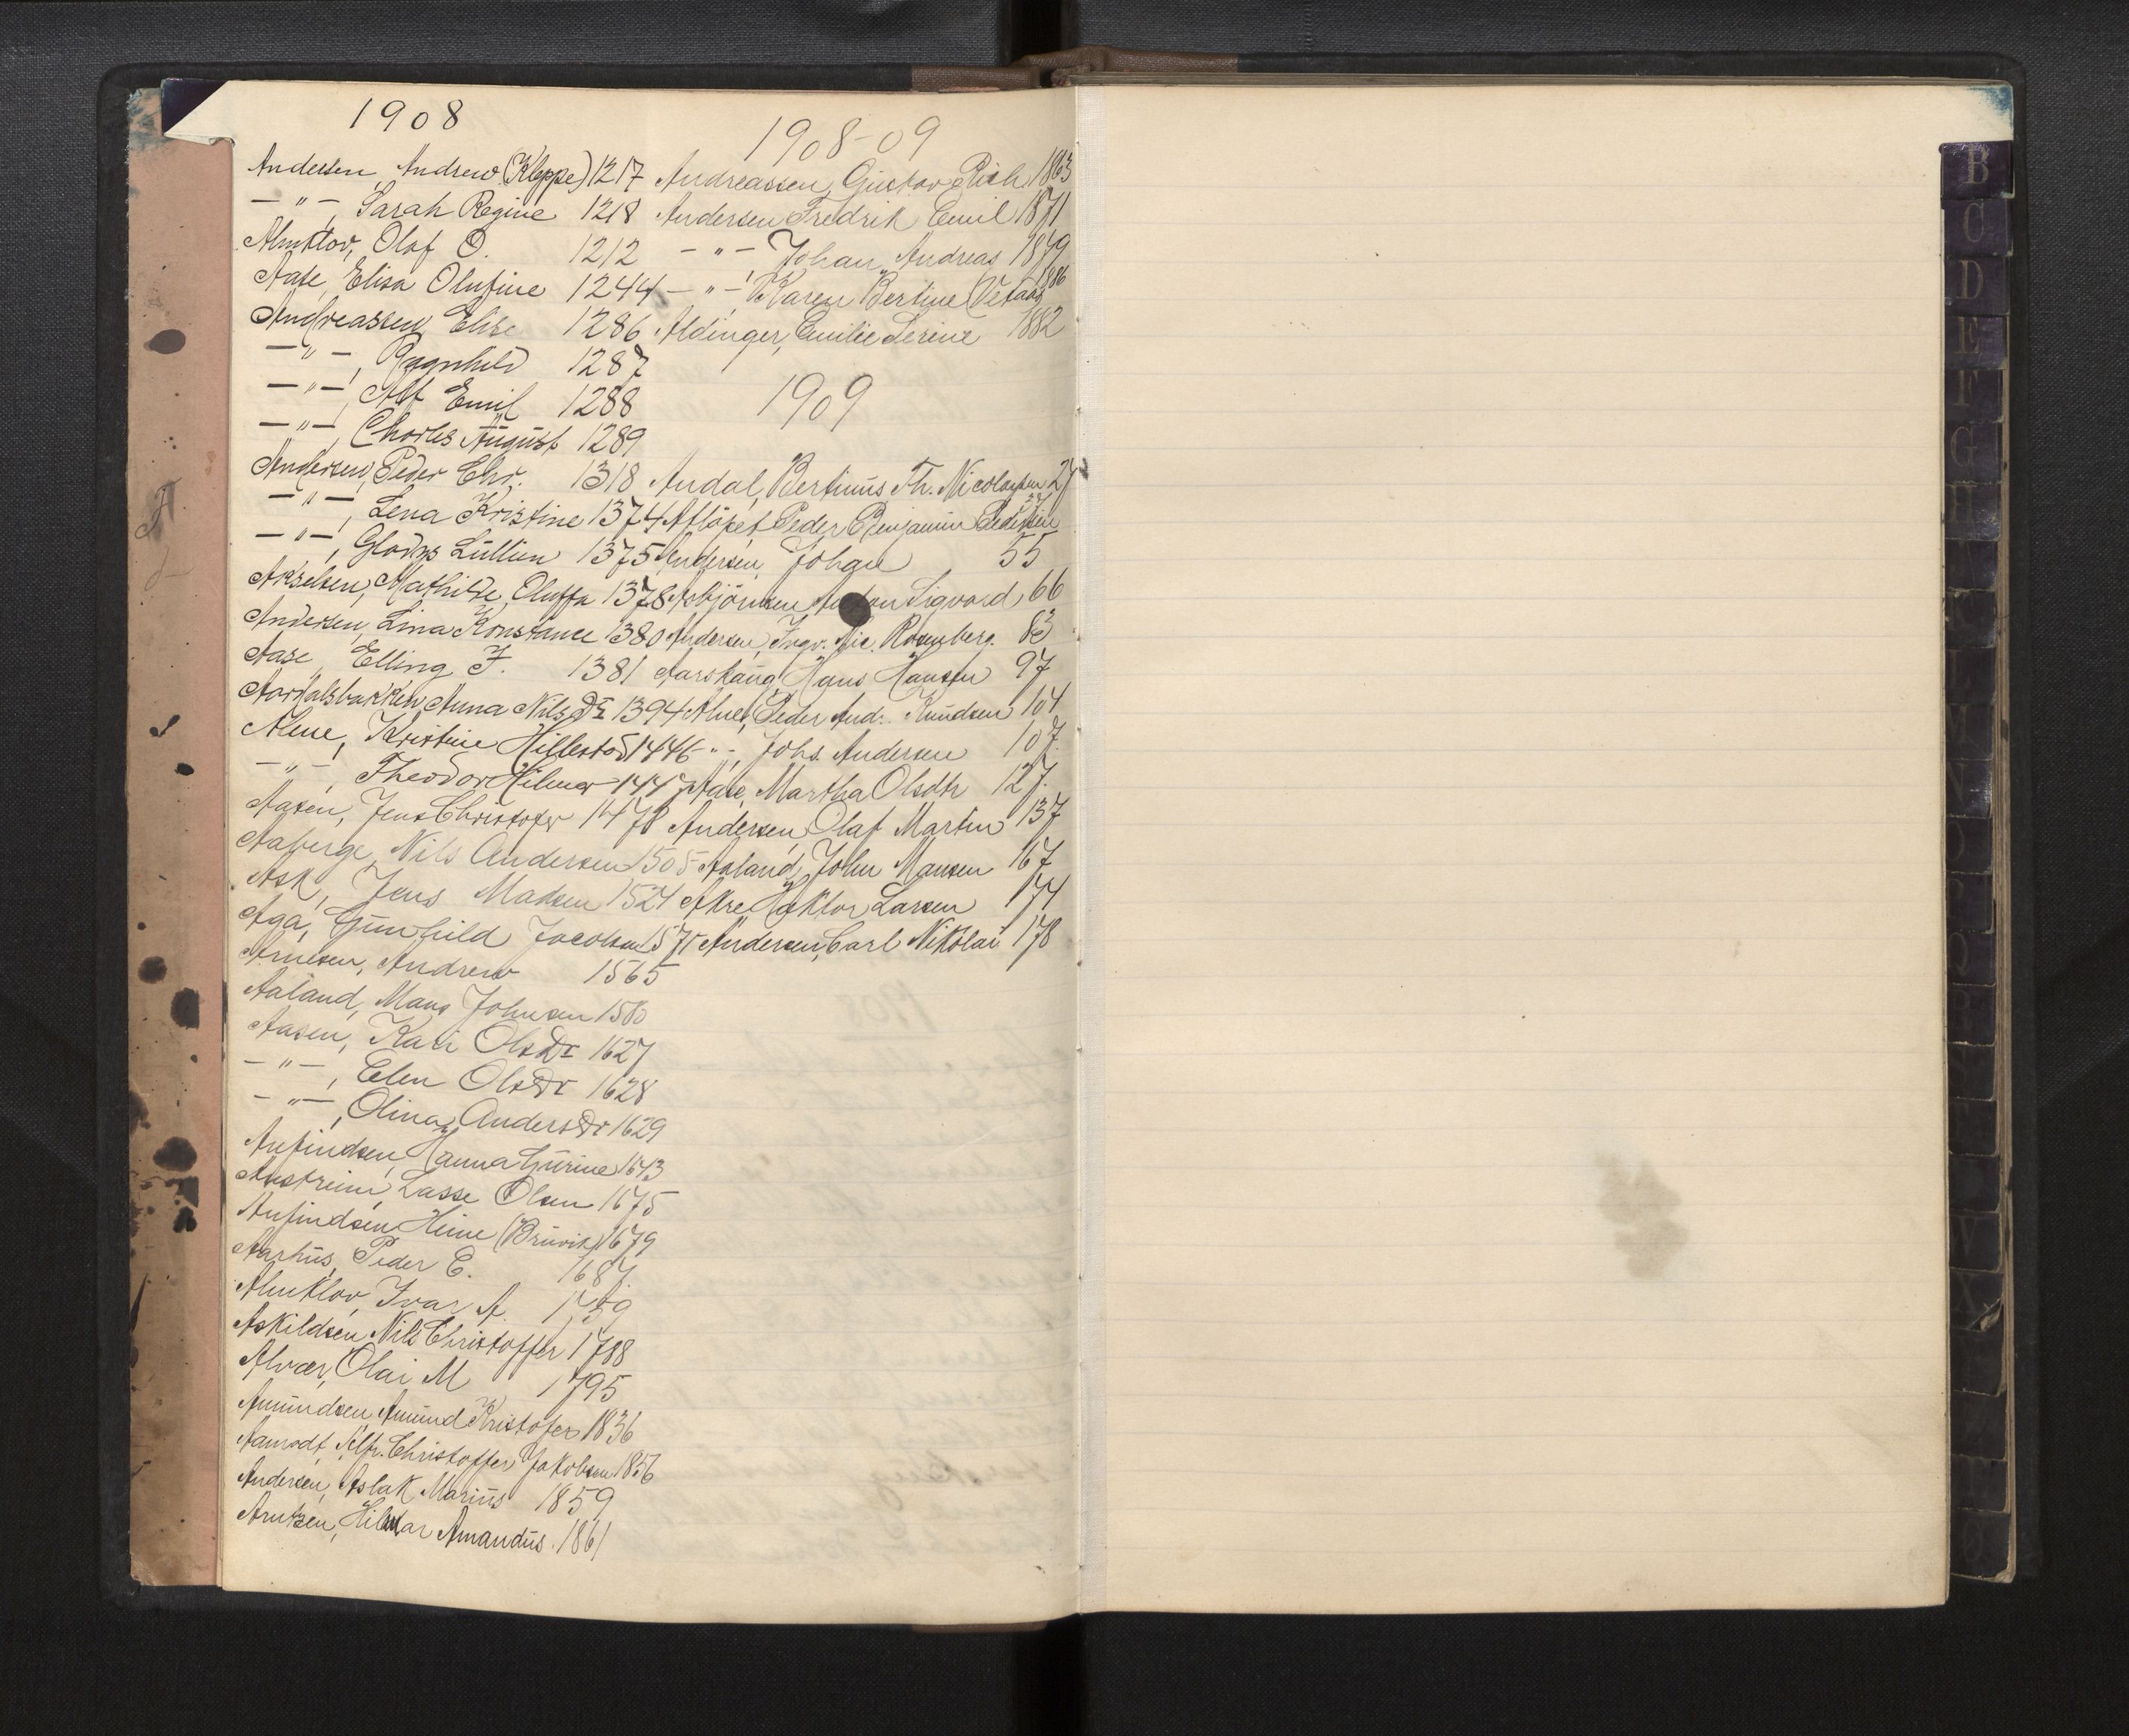 1908
Andersen, Andrew (Kleppe) 1217
— " —, Sarah Regine 1218
Almklov, Olaf O. 1212
Aase, Elisa Olufine 1244
Andreassen, Elise 1286
— " —, Ragnhild 1287
— " —, Alf Emil 1288
— " —, Charles August 1289
Andersen, Peder Chr. 1318
— " —, Lena Kristine 1374
— " —, Gladys Lullien 1375
Akselsen, Mathilde Oluffa 1378
Andersen, Lina Konstance 1380
Aase, Elling J. 1381
Aardalsbakken Anna Nils Dr 1394
Alme, Kristine Hillestad 1446
— " —, Theodor Hilmer 1447
Aasen, Jens Christofer 1478
Aaberge, Nils Andersen 1505
Ask, Jens Madsen 1524
Aga, Gunhild Jacobsen 1571
Arnesen, Andrew 1565
Aaland, Mans Johnsen 1580
Aasen, Kari Olsdr 1627
— " —, Elen Olsdr 1628
— " —, Olina Andersdr 1629
Anfindsen, Hanna Gurine 1643
Austreim, Lasse Olsen 1675
Anfindsen Heine (Bruvik) 1679
Aarhus, Peder E. 1687
Almklov, Ivar A. 1759
Askildsen, Nils Christoffer 1788
Alvær, Olai M 1795
Amundsen, Amund Kristofer 1836
Aamodt, Alfr. Christoffer Jakobsen 1856
Andersen, Aslak Marius 1859
Arntzen, Hilmar Amandus 1861
1908-09
Andreassen, Gustav Rich. 1863
Andersen Fredrik Emil 1871
— " —, Johan Andreas 1879
— " —, Karen Bertine (Vetaas 1886
Aldinger, Emilie Serine 1882
1909
Andal, Bertinus Th. Nicolaysen 27
Afløpet Peder Benjamin Pedersen
Andersen, Johan 55
Asbjørnsen Anton Sigvard 66
Andersen, Ingv. Nic. Rosenberg. 83
Aarskaug Hans Hansen 97
Alne, Peder And. Knudsen 104
— " —, Johs. Andersen 107
Aase, Martha Olsdtr 127.
Andersen, Olaf Martin 137
Aaland, John Mansen 167
Akre Haktor Larsen 174
Andersen, Carl Nikolai 178
B
C
D
E
F
G
H